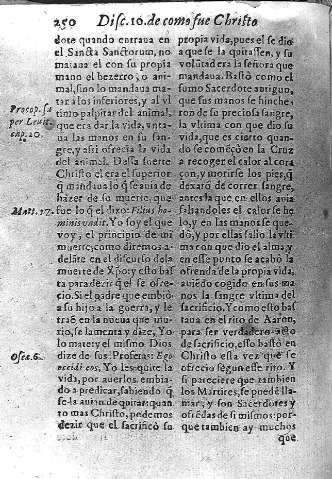 250 Disc. 10. de como fue Christo
dote quando entraua en
el Sancta Sanctorum, no
mataua el con su propia
mano el bezerro, o ani-
mal, sino lo mandaua ma-
tar a los inferiores, y al vl
timo palpitar del animal,
que era dar la vida, vnta-
ua las manos en su san-
gre, y assi ofrecia la vida
del animal. Dessa suerte
Christo era el superior
q mandaua lo q se auia de
hazer de su muerte, que
fue lo q el dixo: Filius ho-
minis vadit. Yo soy el que
voy, el principio de mi
muerte, como diremos a-
delante en el discurso dela
muerte de Xpo: y esto bas
ta para dezir q el se ofre-
cio. Si el padre que embio
a su hijo a la guerra, y le
traē en la nueua que mu-
rio, se lamenta y dize, Yo
lo mate: y el mismo Dios
dize de sus Profetas: Ego
occidi eos, Yo les quite la
vida, por auerlos embia-
do a predicar, sabiendo q
se la auian de quitar: quan
to mas Christo, podemos
dezir que el sacrifico su
Procop. su
per Leuit.
cap. 10.
Matt. 17.
Osee. 6.
propia vida, pues el se dio
a que se la quitassen, y su
volūtad era la señora que
mandaua. Bastò como el
sumo Sacerdote antiguo,
que sus manos se hinche-
ron de su preciosa sangre,
la vltima con que dio su
vida, que es cierto quan-
do se começò en la Cruz
a recoger el calor al cora
çon, y morirse los pies, q
dexarō de correr sangre,
antes la que en ellos auia
faltandoles el calor se he
lo, y en las manos se que-
do, y por ellas salio la vlti
ma con que dio el alma, y
en esse punto se acabò la
ofrenda de la propia vida,
auiēdo cogido en sus ma
nos la sangre vltima del
sacrificio. Y como esto bas
taua en el rito de Aaron,
para ser verdadero acto
de sacrificio, esso bastò en
Christo esta vez que se
ofrecio segun esse rito. Y
si pareciere que tambien
los Martires, se puedē lla-
mar, y son Sacerdotes y
ofrēdas de si mismos: por-
que tambien ay muchos
que